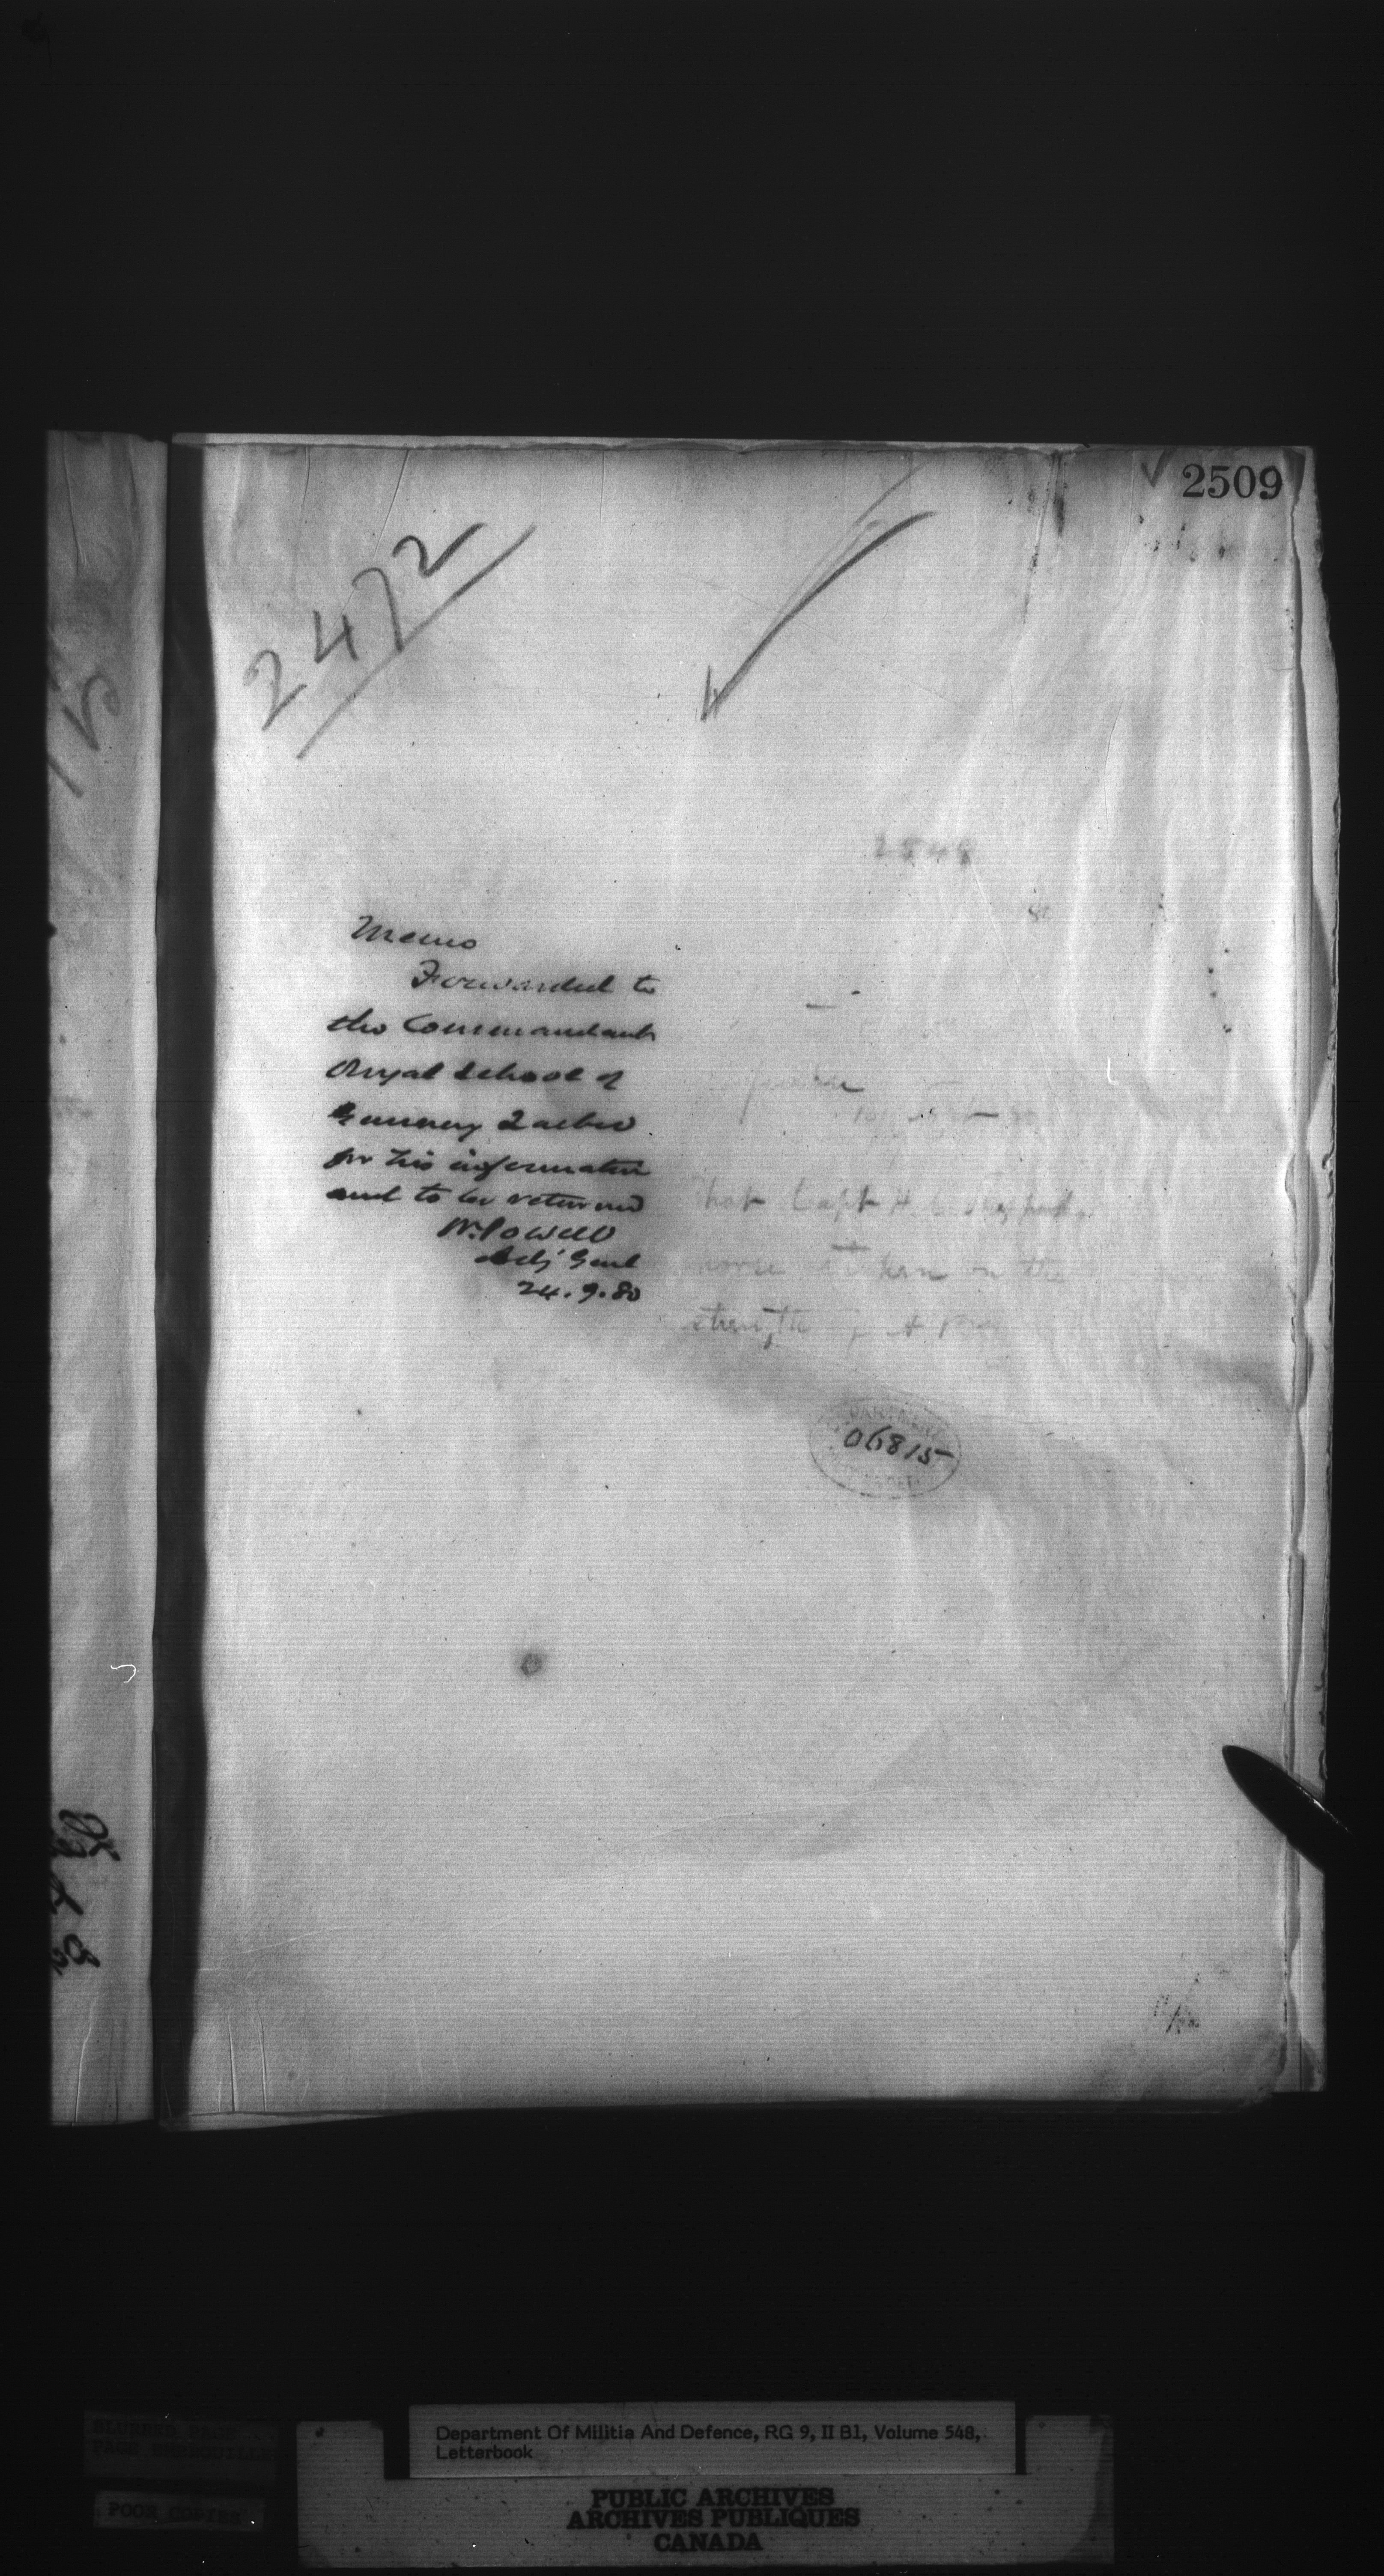 2509
2472
2548
Memo
Forwarded to
the Commandant
Royal School of
Gunnery Quebec
for his information
and to be returned
W. Powell
Adj Genl
24.9.80
that Capt H. C. Sheppard
horse taken on the
strength of A
DEPARTMENT
06815
BLURRED PAGE
PAGE EMBROUILLEE
POOR COPIES
Department Of Militia And Defence, RG 9, II B1, Volume 548,
Letterbook
PUBLIC ARCHIVES
ARCHIVES PUBLIQUES
CANADA